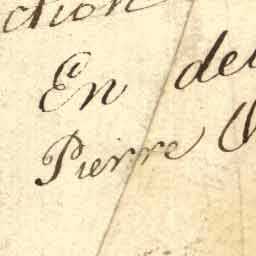 ction
En de
Pierre